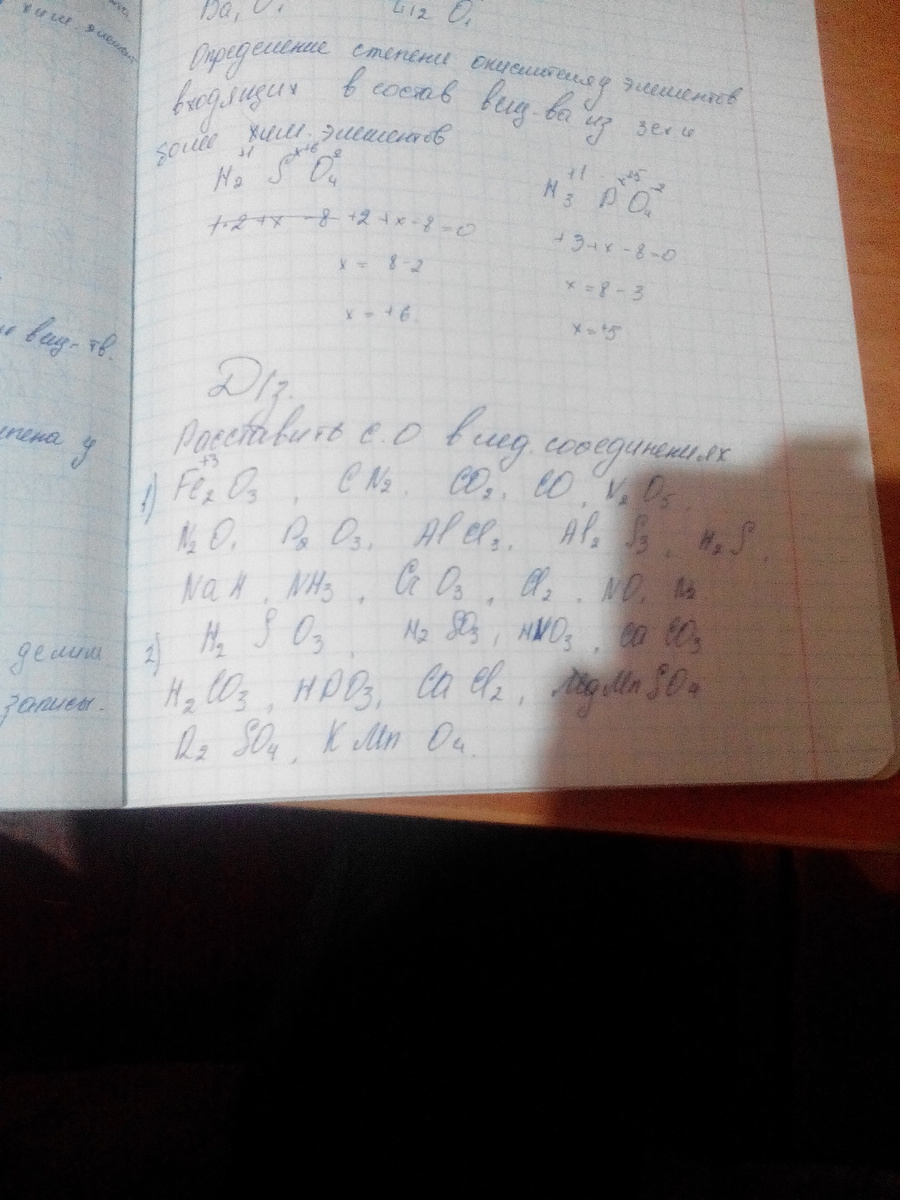 хим. элемент
Ba₁ O₁
Определение степени окислителяу элементов
входящих в состав вещ-ва из 3ех и
более хим. элементов
H₂⁺¹ Sˣ⁺⁶ O₄⁻²
H₃⁺¹ Pˣ⁺⁵ O₄⁻²
+2+x-8 +2+x-8=0
+3+x-8=0
x = 8-2
x = 8-3
x = +6
x = +5
вещ-тв.
Д/з.
Расставить с.О в след. сооединениях
1) Fe₂⁺³ O₃, CN₂. CO₂, CO, N₂ O₅,
N₂O, P₂ O₃, Al Cl₃, Al₂ S₃, H₂ S,
Na H, NH₃, Cr O₃, Cl₂, NO, N₂
2) H₂ S O₃, H₂ SO₃, HNO₃, Ca CO₃
H₂CO₃, HPO₃, Ca Cl₂, MnSO₄
SO₄, K Mn O₄.
делим
записы.